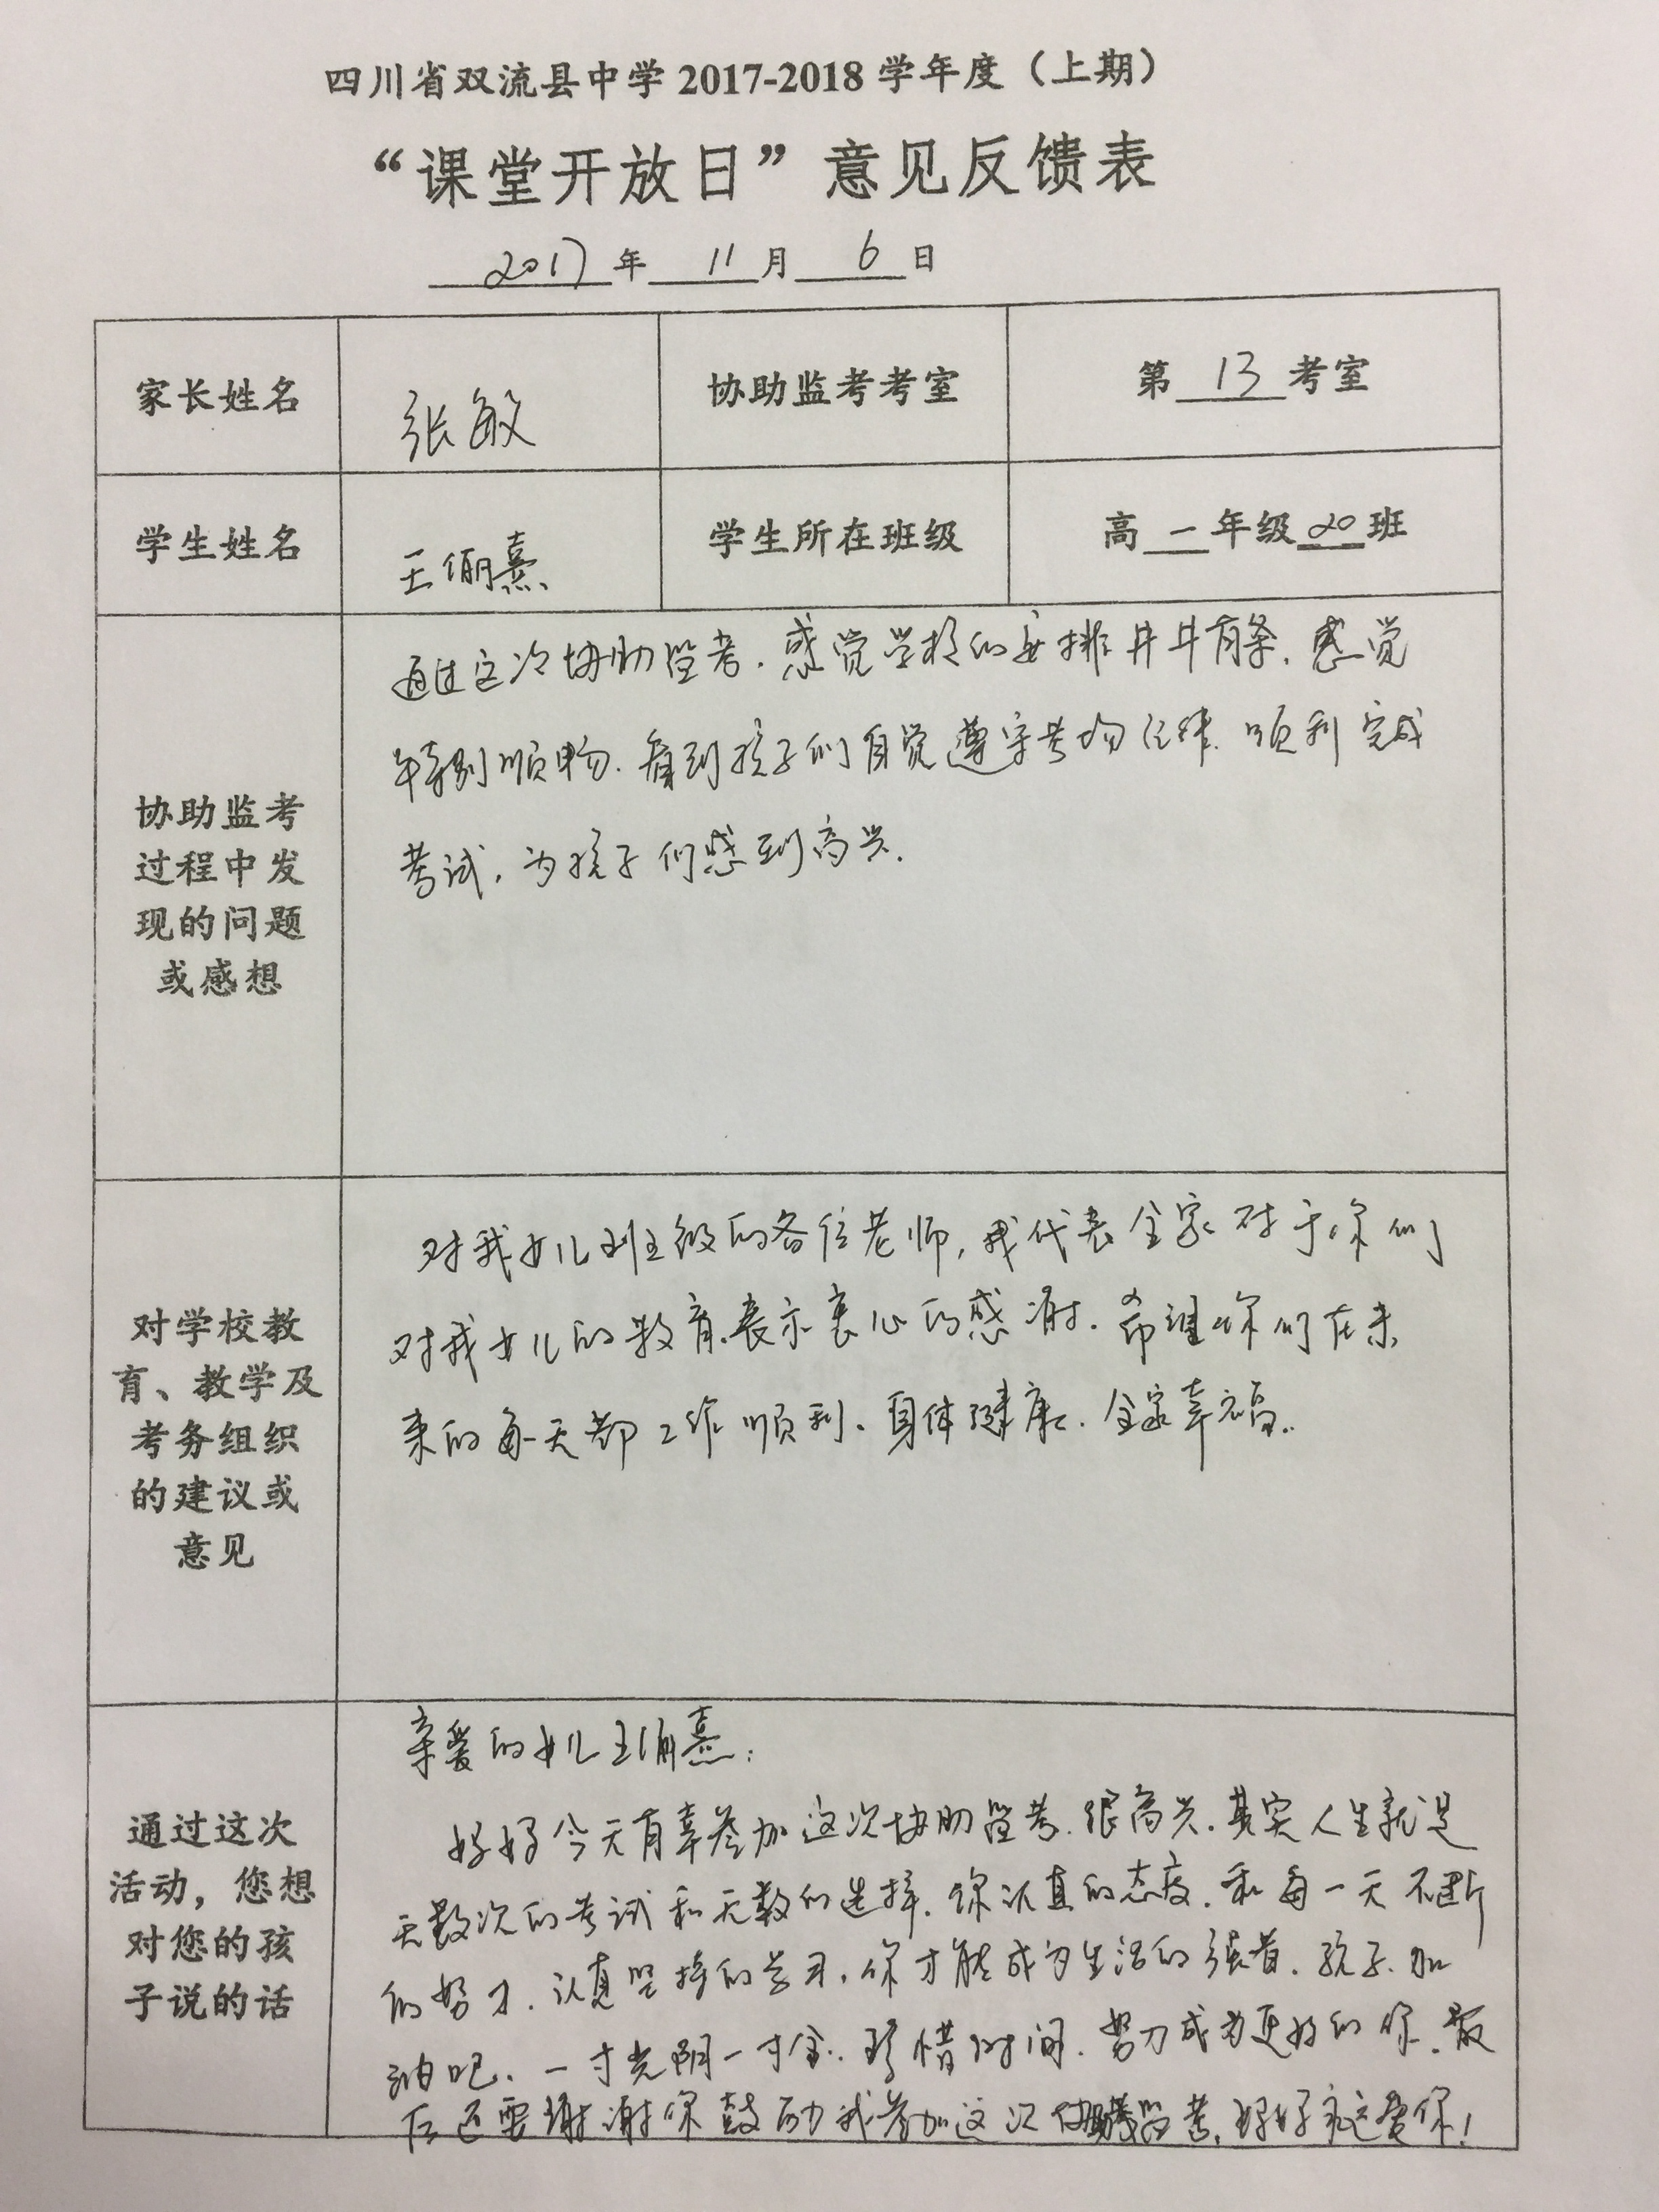 四川省双流县中学 2017-2018 学年度（上期）
“课堂开放日”意见反馈表
2017 年 11 月 6 日
家长姓名 张敏 协助监考考室 第 13 考室
学生姓名 王俪熹 学生所在班级 高 一 年级 20 班
协助监考
过程中发
现的问题
或感想
通过这次协助监考，感觉学校的安排井井有条，感觉
特别顺畅，看到孩子们自觉遵守考场纪律，顺利完成
考试，为孩子们感到高兴。
对学校教
育、教学及
考务组织
的建议或
意见
对我女儿班级的各位老师，我代表全家对于你们
对我女儿的教育，表示衷心的感谢。希望你们在未
来的每一天都工作顺利、身体健康、全家幸福。
通过这次
活动，您想
对您的孩
子说的话
亲爱的女儿王俪熹：
妈妈今天有幸参加这次协助监考，很高兴，其实人生就是
无数次的考试和无数的选择，你认真的态度，和每一天不断
的努力，认真坚持的学习，你才能成为生活的强者，孩子，加
油吧，一寸光阴一寸金，珍惜时间，努力成为更好的你，最
后还要谢谢你鼓励我参加这次协助监考，妈妈永远爱你！